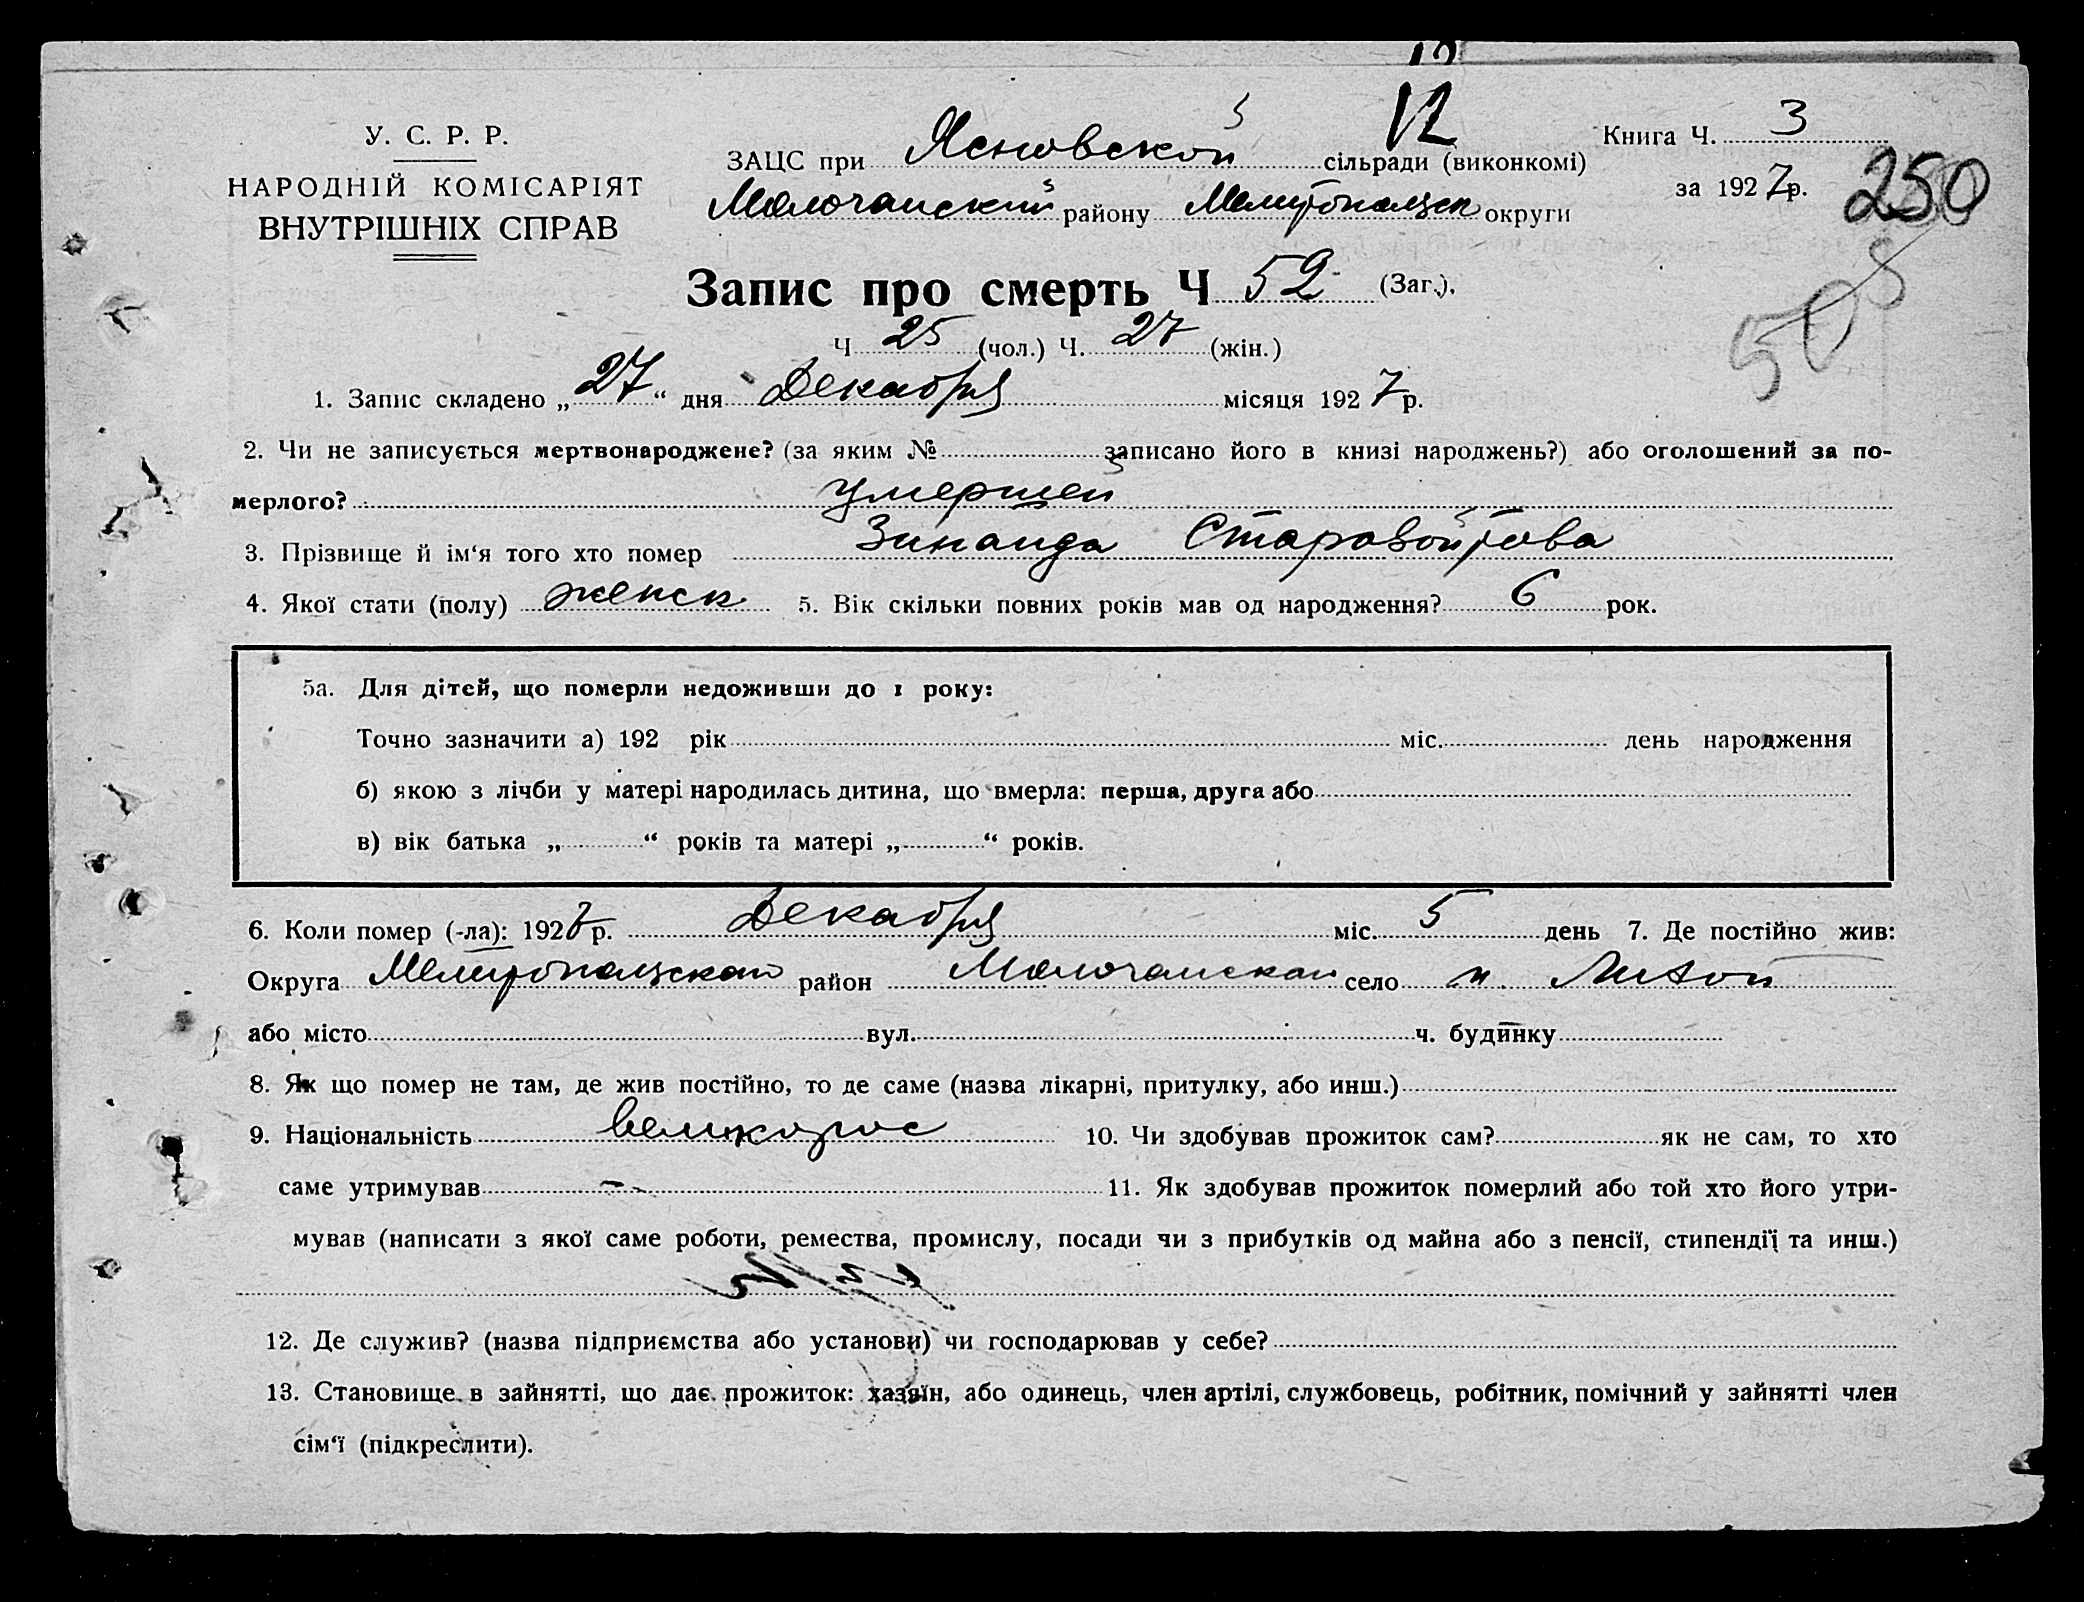 У. С. Р. Р.
НАРОДНІЙ КОМІСАРІЯТ
ВНУТРІШНІХ СПРАВ
12
ЗАЦС при Ясновской сільради (виконкомі)
Молочанский району Мелитопольск округи
Книга Ч. 3
за 1927 р.
250
505
Запис про смерть Ч 52 (Заг.).
Ч 25 (чол.) Ч. 27 (жін.)
1. Запис складено „27“ дня Декабря місяця 1927 р.
2. Чи не записується мертвонароджене? (за яким № записано його в книзі народжень?) або оголошений за по-
мерлого? умершей
3. Прізвище й ім‘я того хто помер Зинаида Старовойтова
4. Якої стати (полу) женск 5. Вік скільки повних років мав од народження? 6 рок.
5а. Для дітей, що померли недоживши до 1 року:
Точно зазначити а) 192 рік міс. день народження
б) якою з лічби у матері народилась дитина, що вмерла: перша, друга або
в) вік батька „ “ років та матері „ “ років.
6. Коли помер (-ла): 1927 р. Декабря міс. 5 день 7. Де постійно жив:
Округа Мелитопольская район Молочанская село
або місто вул. ч. будинку
8. Як що помер не там, де жив постійно, то де саме (назва лікарні, притулку, або инш.)
9. Національність великорос 10. Чи здобував прожиток сам? як не сам, то хто
саме утримував 11. Як здобував прожиток померлий або той хто його утри-
мував (написати з якої саме роботи, ремества, промислу, посади чи з прибутків од майна або з пенсії, стипендії та инш.)
12. Де служив? (назва підприємства або установи) чи господарював у себе?
13. Становище в зайнятті, що дає прожиток: хазяїн, або одинець, член артілі, службовець, робітник, помічний у зайнятті член
сім‘ї (підкреслити).